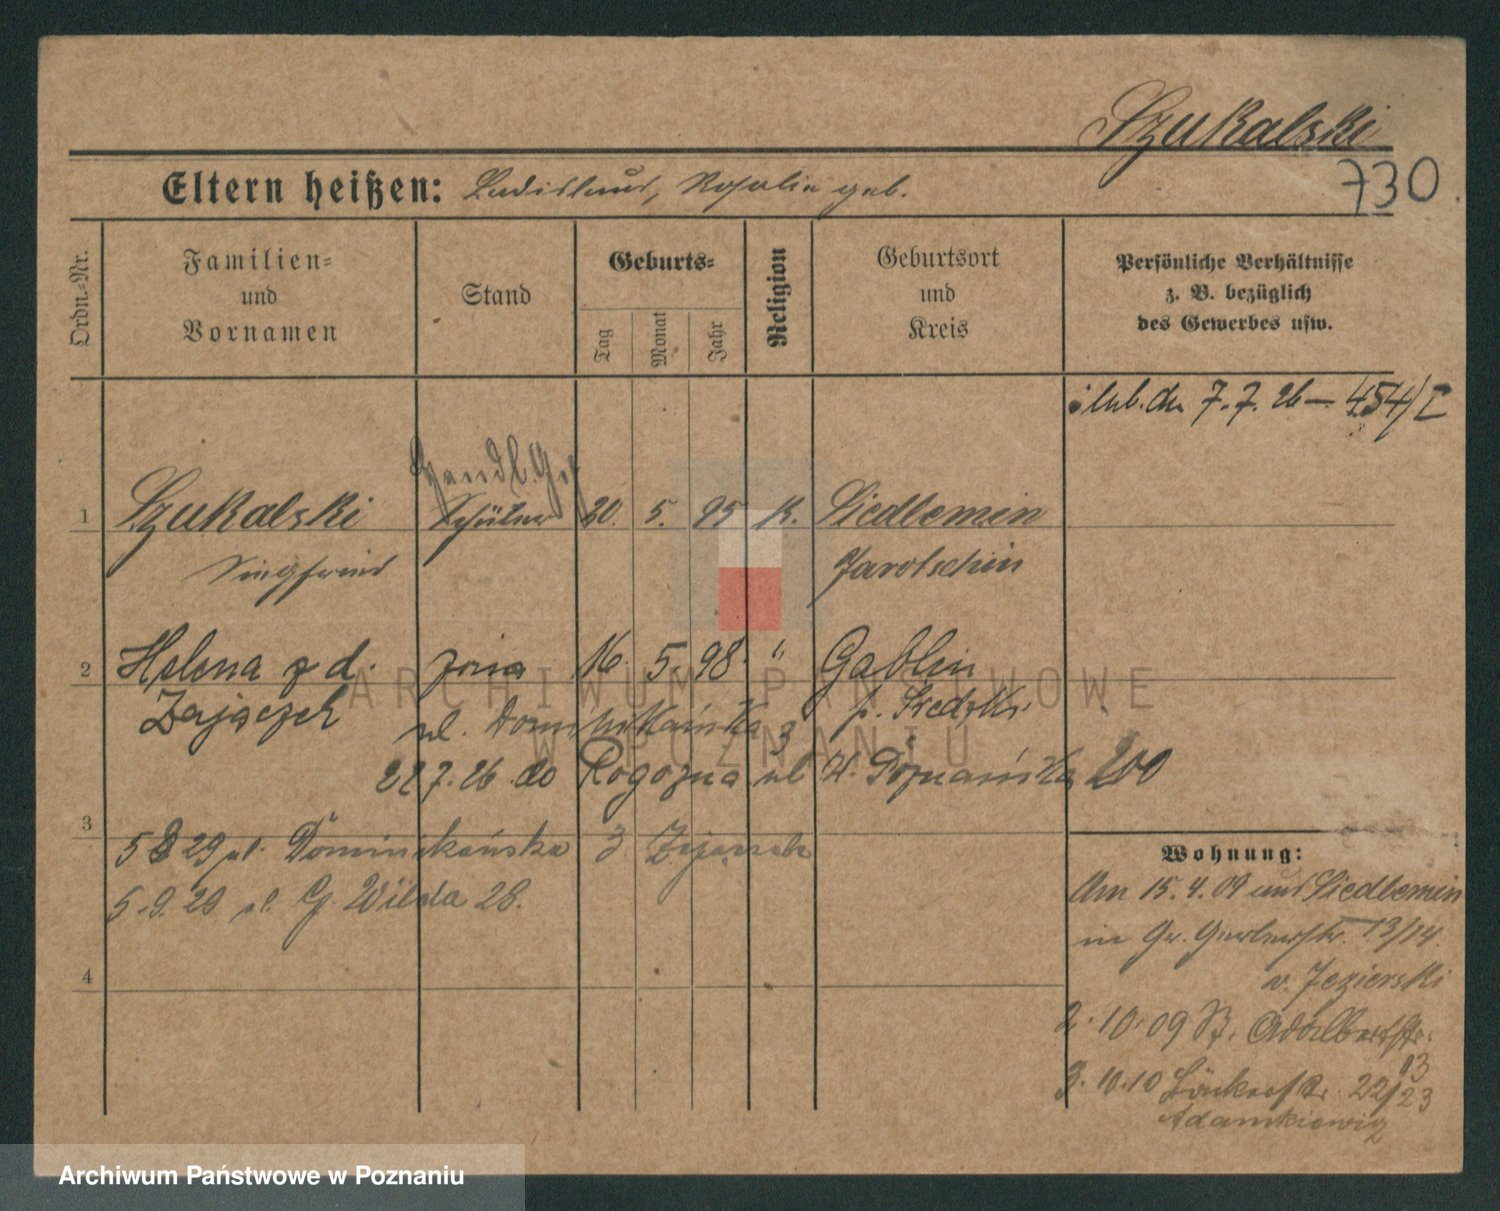 Szukalski
730
Eltern heißen: Ladislaus, Rosalie geb.
Ordn.-Nr.
Familien-
und
Vornamen
Stand
Geburts-
Tag
Monat
Jahr
Religion
Geburtsort
und
Kreis
Persönliche Verhältnisse
z. B. bezüglich
des Gewerbes usw.
ślub. dn 7.7.26 — 454/I
Handl. Geh
1 Szukalski Schüler 20. 5. 95 K. Siedlemin
Siegfried Jarotschin
2 Helena z d. żona 16. 5. 98. " Gablin
Zajączek p. Średzki
ul. Dominikańska 3
22 7. 26 do Rogoźna ul W. Poznańska 200
3
5 8 29 ul. Dominikańska 3 Zajączek
5.9.29 ul. G. Wilda 28.
4
Wohnung:
Am 15.4.09 aus Siedlemin
in Gr. Gerberstr. 13/14.
v. Jezierski
2.10.09 St. Adalbertstr.
13
3.10.10 22/23
Adamkiewicz
ARCHIWUM PAŃSTWOWE
W POZNANIU
Archiwum Państwowe w Poznaniu